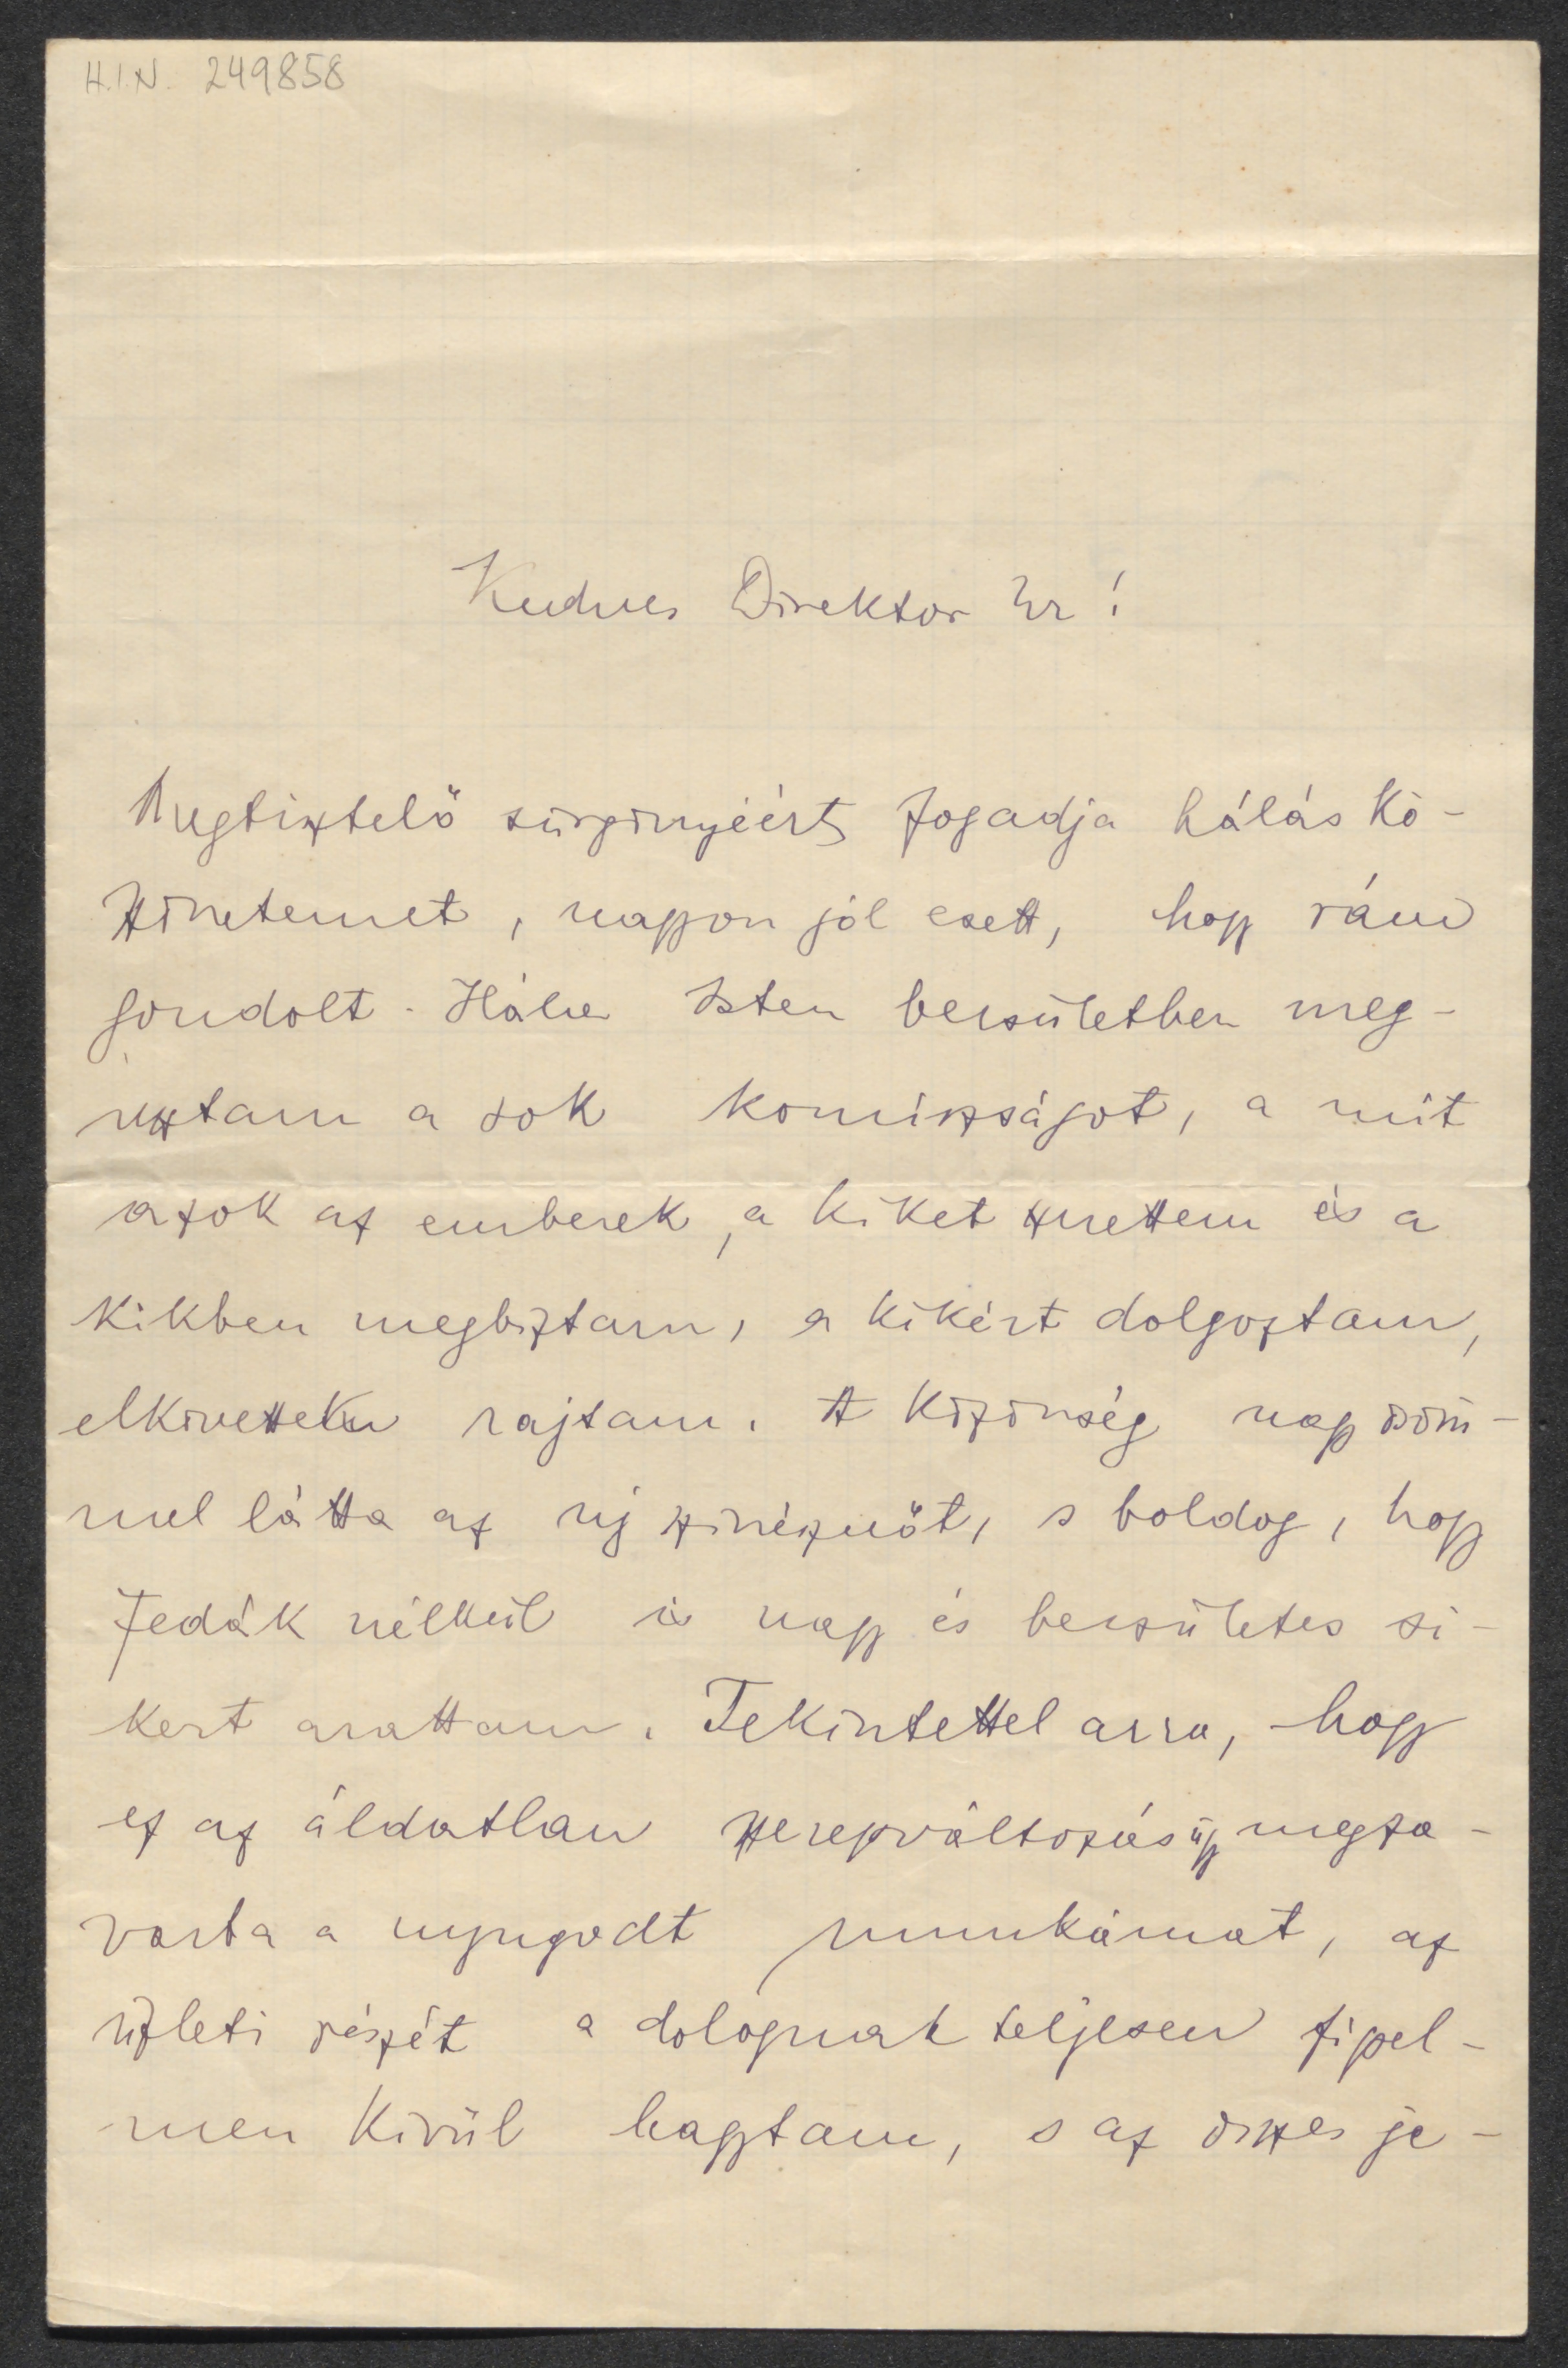 H.I.N. 249858
Kedves Direktor Ur!
Megtisztelő sürgönyéért fogadja hálás kö-
szönetemet, nagyon jól esett, hogy rám
gondolt. Hála Isten becsületben meg-
usztam a sok komiszságot, a mit
azok az emberek, a kiket szerettem és a
kikben megbiztam, a kikért dolgoztam,
elkövettek rajtam. A közönség nagy öröm-
mel látta az uj színésznőt, s boldog, hogy
Fedák nélkül is nagy és becsületes si-
kert arattam. Tekintettel arra, hogy
ez az áldatlan szerepváltozás ügy megza-
varta a nyugodt munkámat, az
üzleti részét a dolognak teljesen figyel-
men kivül hagytam, s az összes je-